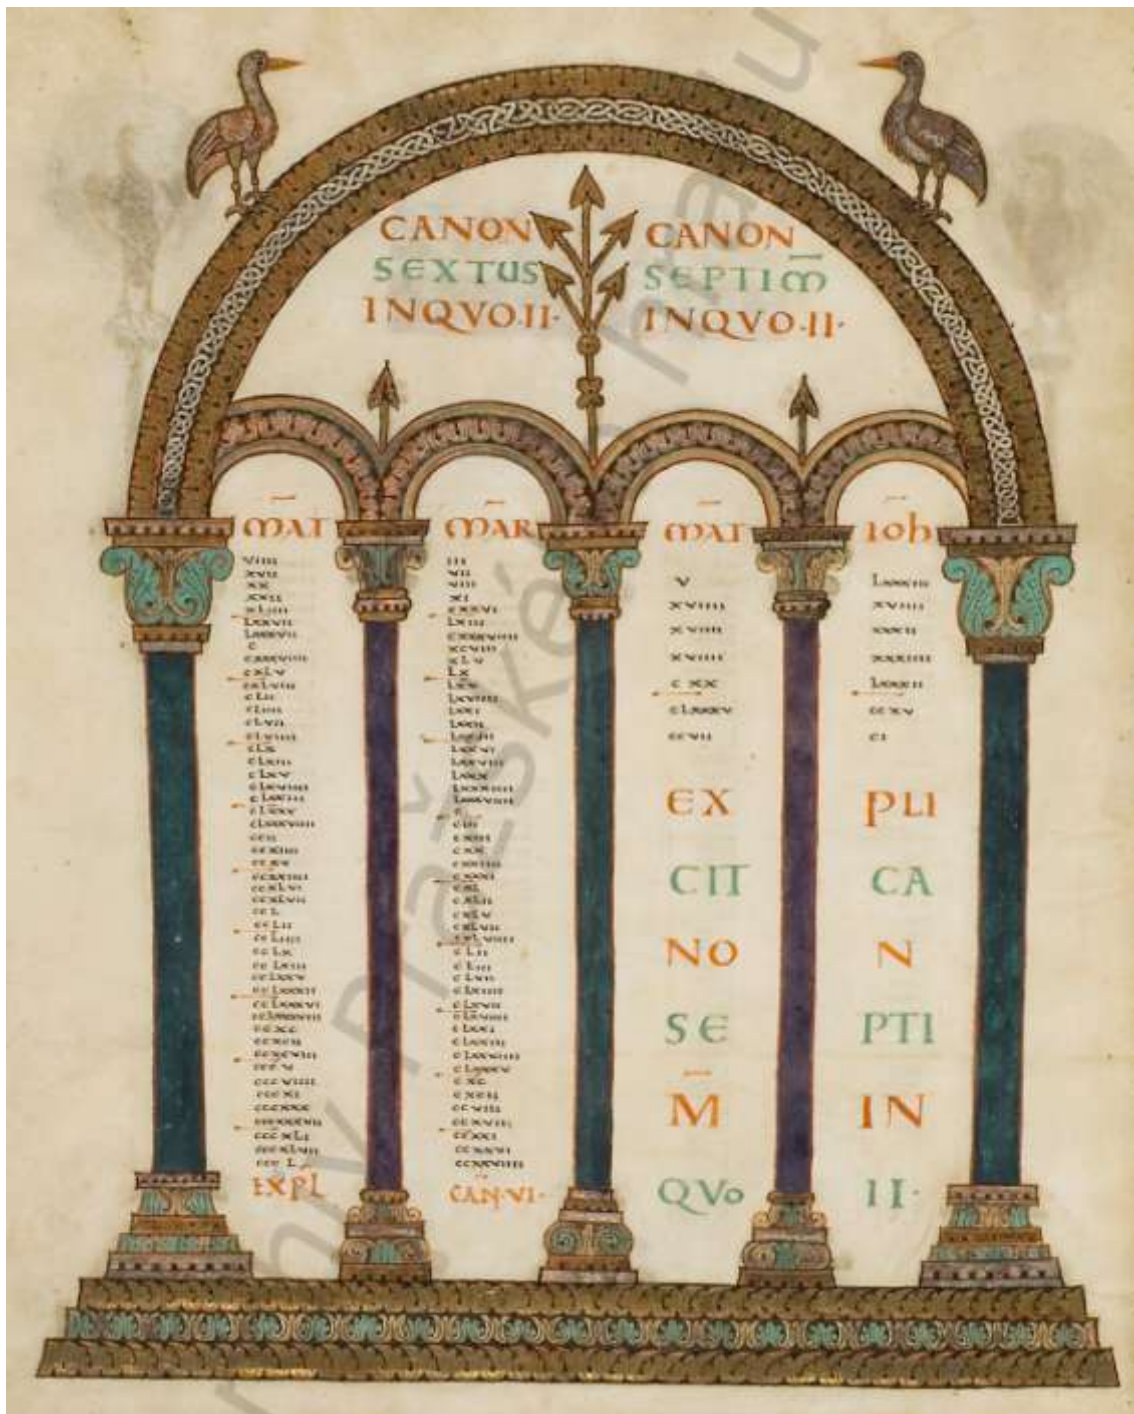 CANON
SEXTUS
INQVO·II·
CANON
SEPTIM̅
INQVO·II·
MAT
VIIII
XVII
XX
XXII
XLIIII
LXXVII
LXXXVII
C
CXXXVIIII
CXLV
CXLVIII
CLII
CLIIII
CLVII
CLVIIII
CLX
CLXIII
CLXV
CLXVIIII
CLXXIII
CLXXX
CLXXXVIIII
CCII
CCXIIII
CCXV
CCXXIIII
CCXLVI
CCXLVII
CCL
CCLII
CCLIIII
CCLX
CCLXIII
CCLXXV
CCLXXXII
CCLXXXVI
CCXC
CCXCII
CCXCVIII
CCCV
CCCVIIII
CCCXI
CCCXXX
CCCXLI
CCCXLVII
CCCL
EXPL
MAR
III
VII
VIIII
XI
CXXVI
LXIII
CXXXVIIII
XCVIII
XLV
LX
LXV
LXVIIII
LXXI
LXXII
LXXIII
LXXVI
LXXVIII
LXXX
C
CIII
CXIII
CXX
CXXIIII
CXXXI
CXL
CXLII
CXLV
CXLVII
CXLVIIII
CLII
CLIII
CLVII
CLVIIII
CLXVII
CLXVIIII
CLXXI
CLXXIII
CLXXVIIII
CLXXXV
CXC
CXCII
CCVIII
CCXVII
CCXXI
CCXXVI
CCXXVIIII
CAN·VI·
MAT
V
XVIIII
XVIIII
XVIIII
CXX
CLXXXV
CCVII
IOh
LXXXIII
XVIIII
XXXII
XXXIIII
LXXXII
CCXV
CI
EX PLI
CIT CA
NO N
SE PTI
M̅ IN
QVO II·